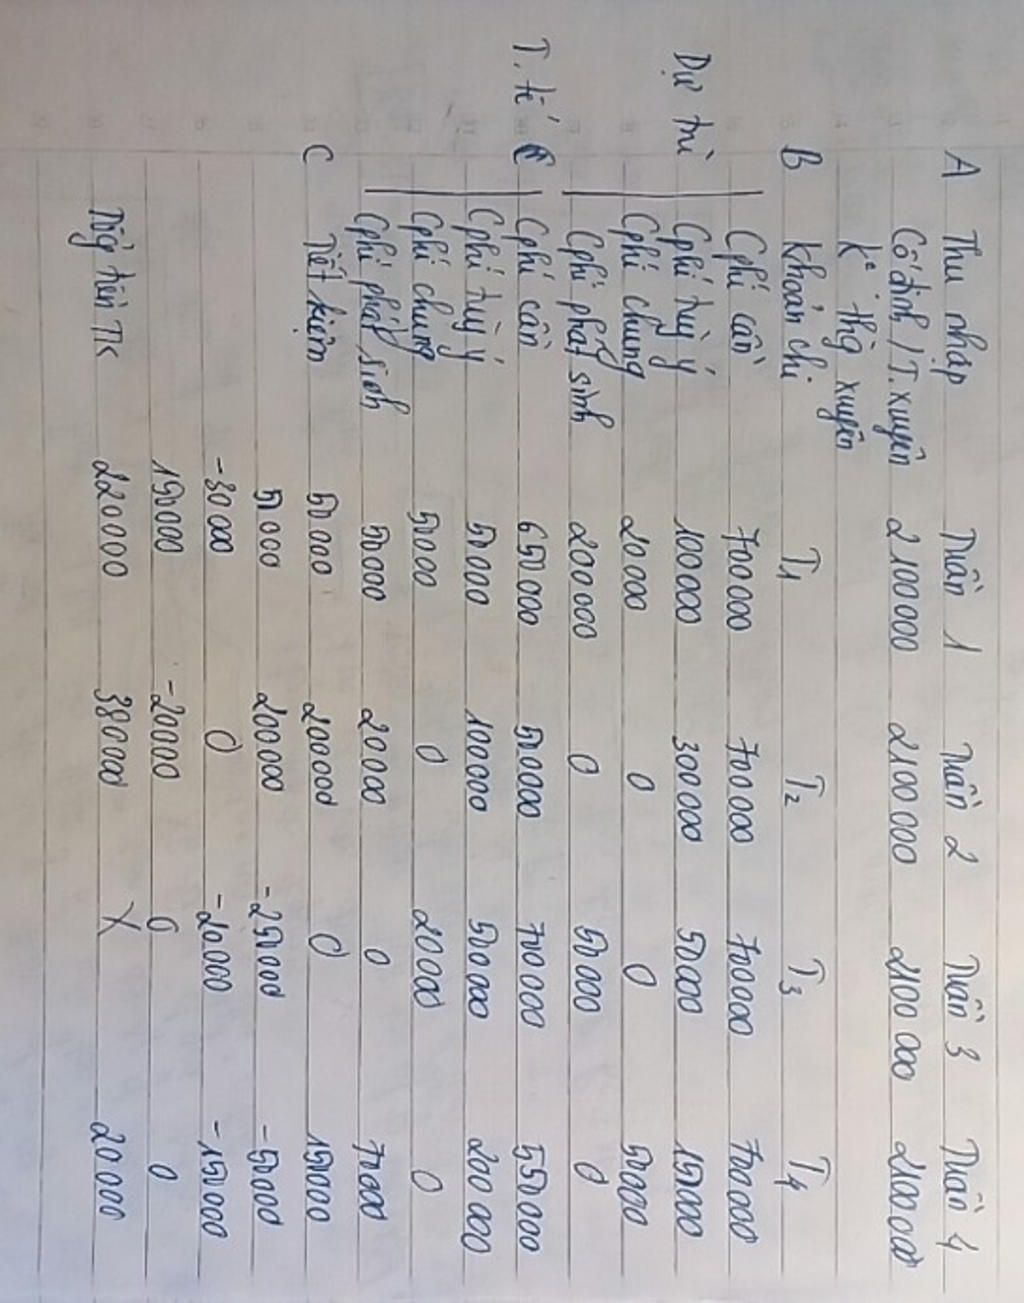 A Thu nhập Tuần 1 Tuần 2 Tuần 3 Tuần 4
Cố định / T.xuyên 2100000 2100000 2100000 2100000
K° thg xuyên
B Khoản chi T1 T2 T3 T4
Cphí cần 700000 700000 700000 700000
Dự trù Cphí tùy ý 100000 300000 50000 150000
Cphí chung 20000 0 0 50000
Cphí phát sinh 200000 0 50000 0
T. tế Cphí cần 650000 500000 700000 550000
Cphí tùy ý 50000 100000 500000 200000
Cphí chung 50000 0 20000 0
Cphí phát sinh 50000 20000 0 70000
C Tiết kiệm 50000 200000 0 150000
50000 200000 -250000 -50000
-30000 0 -20000 -150000
150000 -20000 0 0
Tổng tiền TK 220000 38000 X 20000